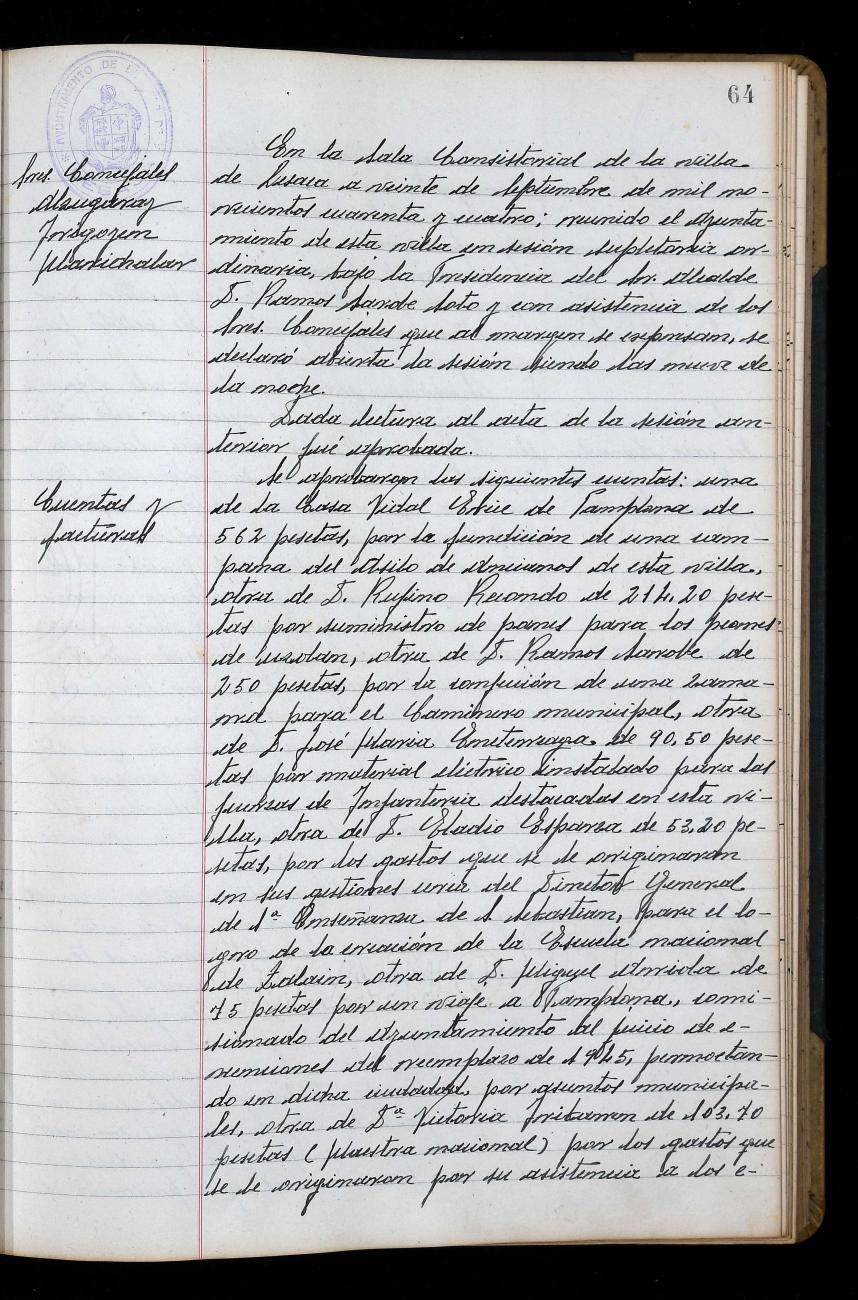 64
AYUNTAMIENTO DE
Sres. Concejales
Alzugaray
Irigoyen
Marichalar
En la Sala Consistorial de la villa
de Lesaca a veinte de Septiembre de mil no-
vecientos cuarenta y cuatro; reunido el Ayunta-
miento de esta villa en sesión supletoria or-
dinaria, bajo la Presidencia del Sr. Alcalde
D. Ramos Sarobe Soto y con asistencia de los
Sres. Concejales que al margen se expresan, se
declaró abierta la sesión siendo las nueve de
la noche.
Dada lectura al acta de la sesión an-
terior fué aprobada.
Cuentas y
facturas
Se aprobaron las siguientes cuentas: una
de la Casa Vidal Erice de Pamplona de
562 pesetas, por la fundición de una cam-
pana del Asilo de Ancianos de esta villa,
otra de D. Rufino Recondo de 214,20 pese-
tas por suministro de panes para los peones
de uzolan, otra de D. Ramos Sarobe de
250 pesetas, por la confección de una zama-
rra para el Caminero municipal, otra
de D. José Maria de 90,50 pese-
tas por material eléctrico instalado para las
fuerzas de Infanteria destacadas en esta vi-
lla, otra de D. Eladio Esparza de 53,20 pe-
setas, por los gastos que se le originaron
en sus gestiones cerca del Director General
de 1ª Enseñanza de S. Sebastian, para el lo-
gro de la creación de la Escuela nacional
de Zalain, otra de D. Miguel Arriola de
75 pesetas por un viaje a Pamplona, comi-
sionado del Ayuntamiento al juicio de e-
xenciones del reemplazo de 1945, pernoctan-
do en dicha ciudad, por asuntos municipa-
les, otra de Dª Victoria Iribarren de 103,70
pesetas (Maestra nacional) por los gastos que
se le originaron por su asistencia a los e-